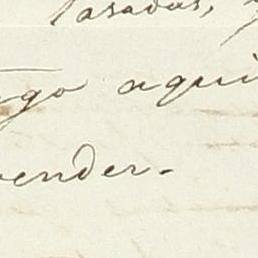 Pasadas,
ego aqui
vender.